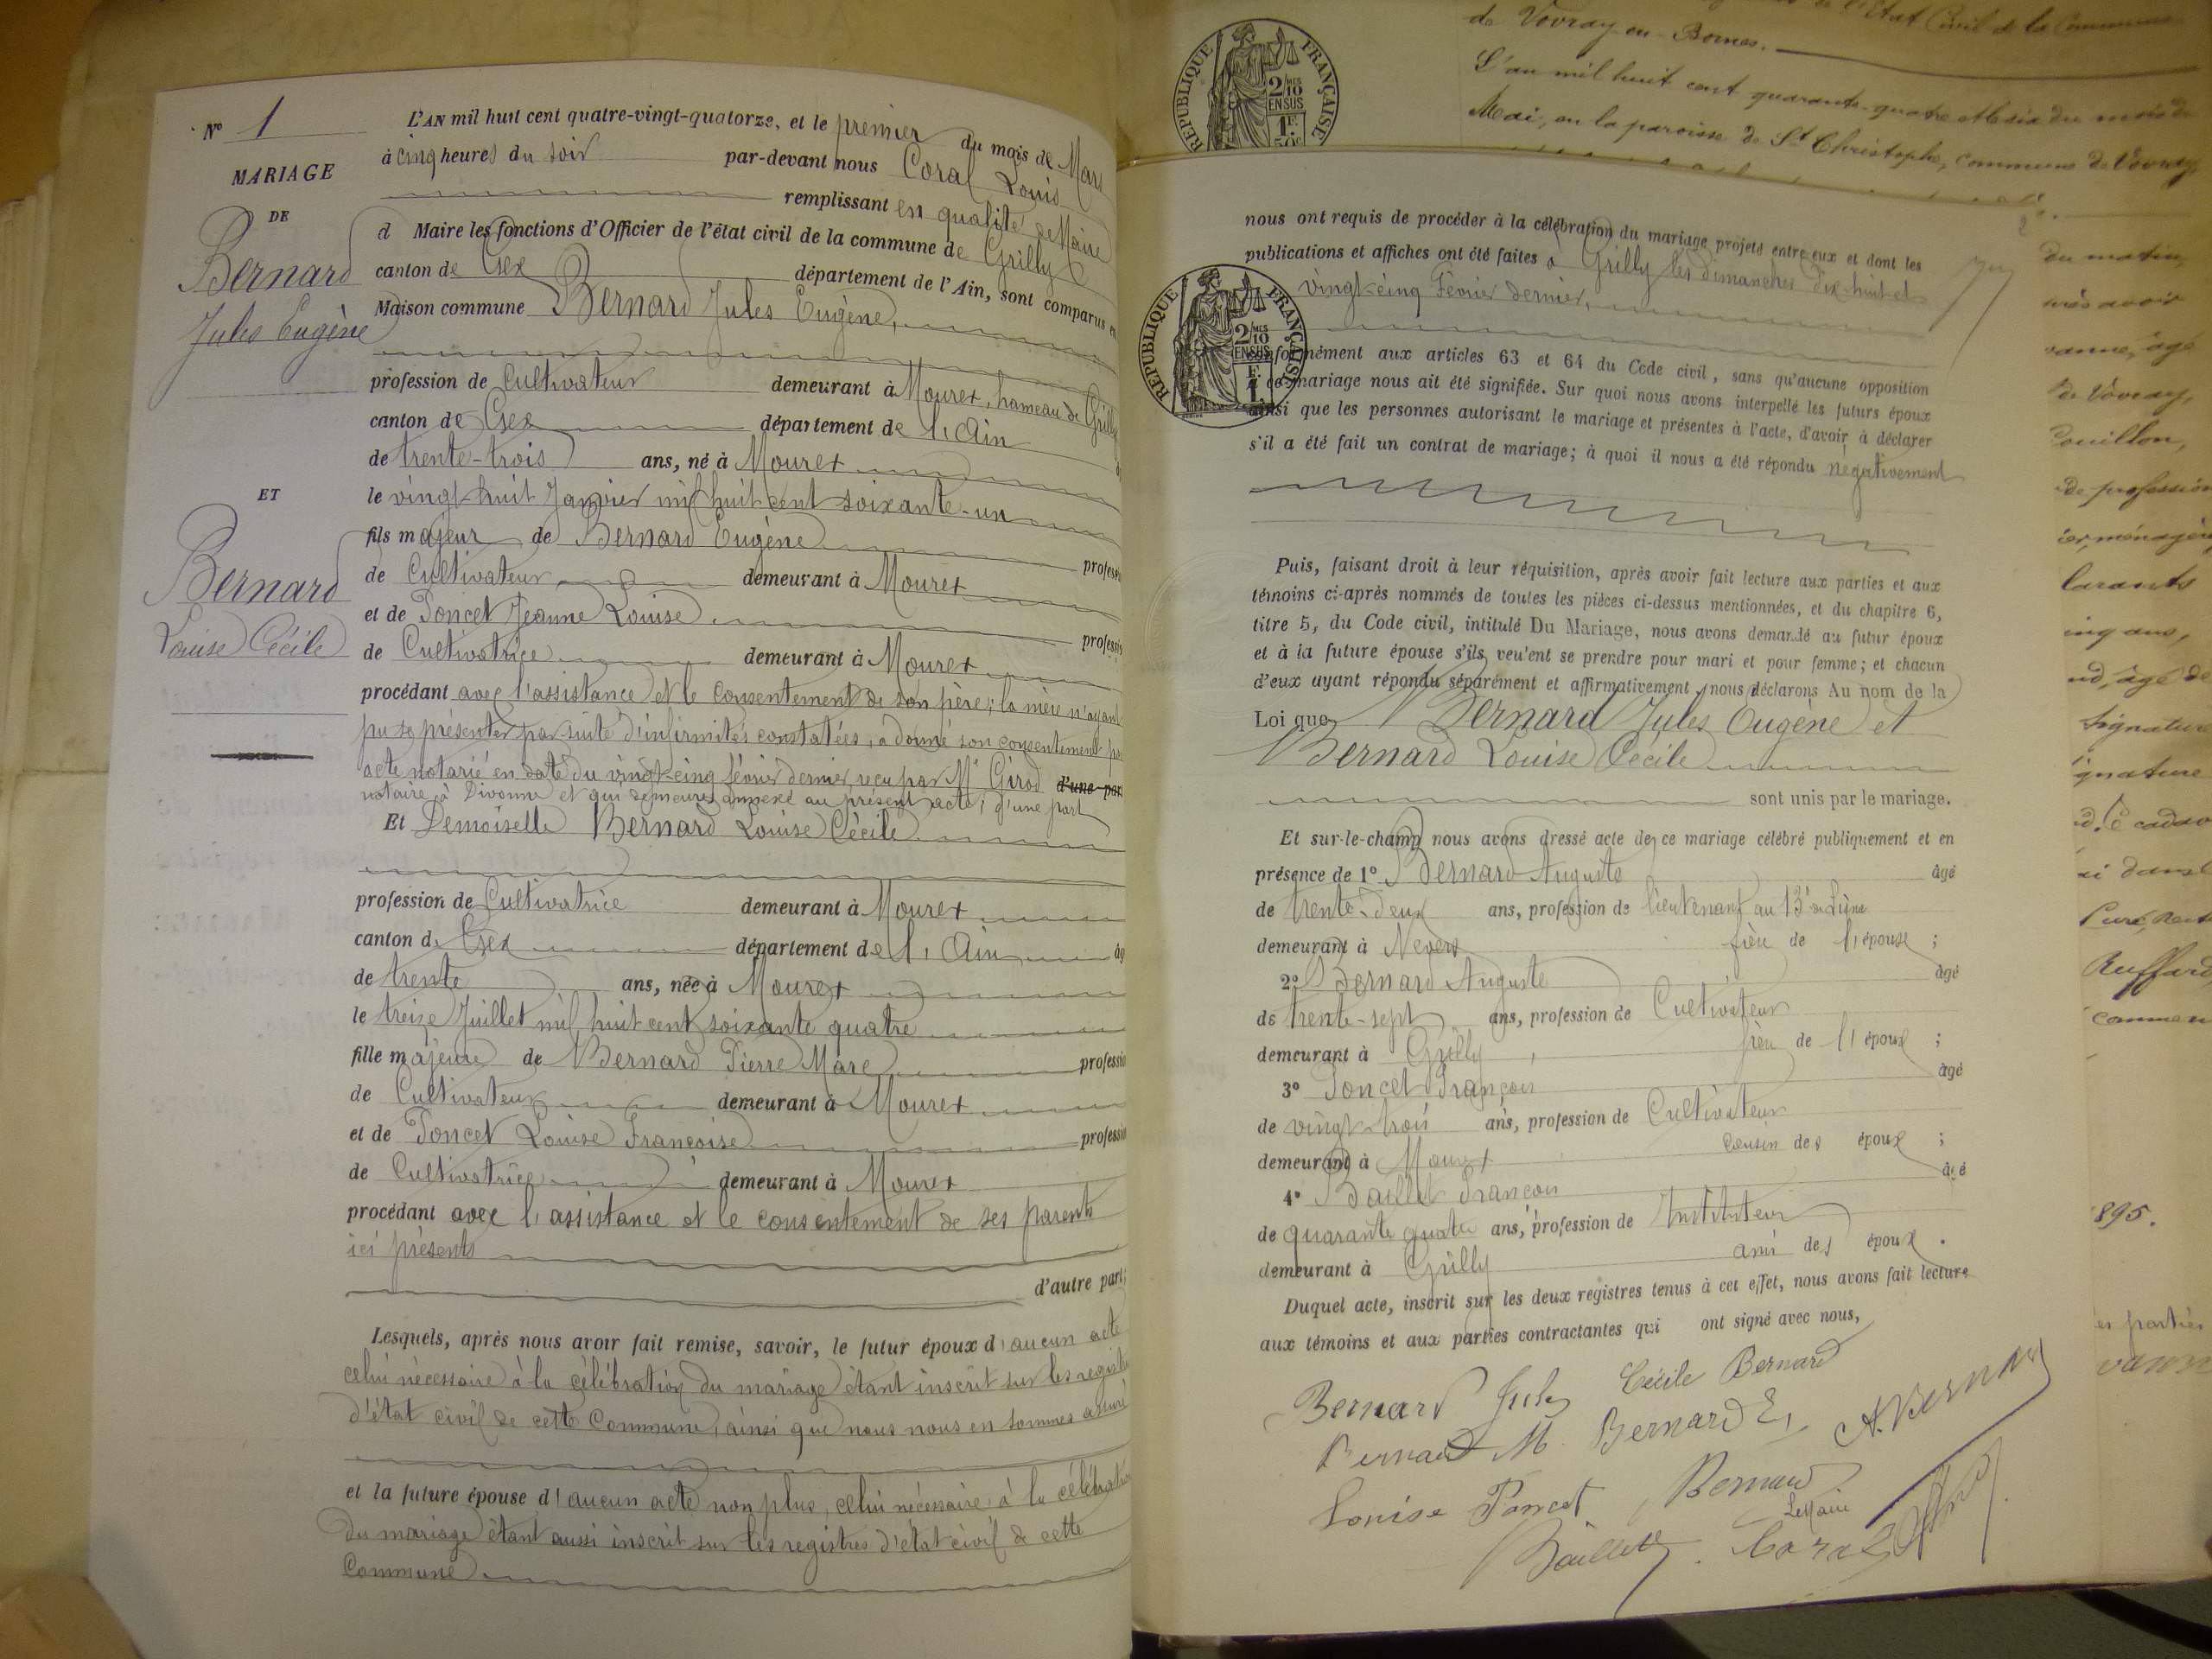 de Vovray-en-Bornes.
L'an mil huit cent quarante-quatre et le six du mois de
Mai, en la paroisse de St Christophe, commune de Vovray
REPUBLIQUE FRANÇAISE
2/10 MES
EN SUS
1 F.
50c
N° 1
MARIAGE
DE
Bernard
Jules Eugène
ET
Bernard
Louise Cécile
L'AN mil huit cent quatre-vingt-quatorze, et le premier du mois de Mars
à cinq heures du soir par-devant nous Coral Louis
remplissant en qualité de Maire
d Maire les fonctions d'Officier de l'état civil de la commune de Grilly
canton de Gex département de l'Ain, sont comparus en
Maison commune Bernard Jules Eugène,
profession de Cultivateur demeurant à Mourex, hameau de Grilly
canton de Gex département de l'Ain
de trente-trois ans, né à Mourex
le vingt-huit Janvier mil huit cent soixante-un
fils majeur de Bernard Eugène professi
de Cultivateur demeurant à Mourex
et de Poncet Jeanne Louise professi
de Cultivatrice demeurant à Mourex
procédant avec l'assistance et le consentement de son père; la mère n'ayant
pu se présenter par suite d'infirmités constatées, a donné son consentement par
acte notarié en date du vingt-cinq février dernier, reçu par Me Girod d'une part
notaire à Divonne et qui demeure annexé au présent acte; d'une part
Et Demoiselle Bernard Louise Cécile
profession de Cultivatrice demeurant à Mourex
canton de Gex département de l'Ain âg
de trente ans, née à Mourex
le treize Juillet mil huit cent soixante quatre
fille majeure de Bernard Pierre Marc professi
de Cultivateur demeurant à Mourex
et de Poncet Louise Françoise professi
de Cultivatrice demeurant à Mourex
procédant avec l'assistance et le consentement de ses parents
ici présents
d'autre part;
Lesquels, après nous avoir fait remise, savoir, le futur époux d'aucun acte
celui nécessaire à la célébration du mariage étant inscrit sur les registres
d'état civil de cette Commune, ainsi que nous nous en sommes assuré
et la future épouse d'aucun acte non plus, celui nécessaire à la célébration
du mariage étant aussi inscrit sur les registres d'état civil de cette
Commune
nous ont requis de procéder à la célébration du mariage projeté entre eux et dont les
publications et affiches ont été faites à Grilly les dimanches dix-huit et
vingt-cinq Février dernier,
REPUBLIQUE FRANÇAISE
2/10 MES
EN SUS
conformément aux articles 63 et 64 du Code civil, sans qu'aucune opposition
à ce mariage nous ait été signifiée. Sur quoi nous avons interpellé les futurs époux
ainsi que les personnes autorisant le mariage et présentes à l'acte, d'avoir à déclarer
s'il a été fait un contrat de mariage; à quoi il nous a été répondu négativement
Puis, faisant droit à leur réquisition, après avoir fait lecture aux parties et aux
témoins ci-après nommés de toutes les pièces ci-dessus mentionnées, et du chapitre 6,
titre 5, du Code civil, intitulé Du Mariage, nous avons demandé au futur époux
et à la future épouse s'ils veulent se prendre pour mari et pour femme; et chacun
d'eux ayant répondu séparément et affirmativement, nous déclarons Au nom de la
Loi que Bernard Jules Eugène et
Bernard Louise Cécile
sont unis par le mariage.
Et sur-le-champ nous avons dressé acte de ce mariage célébré publiquement et en
présence de 1° Bernard Auguste âgé
de trente-deux ans, profession de lieutenant au 13e de Ligne
demeurant à Nevers frère de l'épouse;
2° Bernard Auguste âgé
de trente-sept ans, profession de Cultivateur
demeurant à Grilly, frère de l'époux;
3° Poncet François âgé
de vingt-trois ans, profession de Cultivateur
demeurant à Mourex cousin des époux;
4° Baillet François âgé
de quarante quatre ans, profession de Instituteur
demeurant à Grilly ami des époux.
Duquel acte, inscrit sur les deux registres tenus à cet effet, nous avons fait lecture
aux témoins et aux parties contractantes qui ont signé avec nous,
Bernard Jules Cécile Bernard
Bernard M. Bernard E, A. Bernard
Louise Poncet Bernard
Le Maire
Baillet. Coral
du matin,
de Vovray,
de profession
larants
cinq ans,
signature
ignature
895.